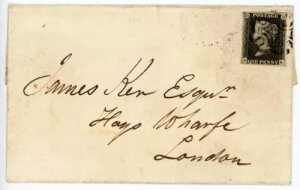 POSTAGE
ONE PENNY
James Ker Esqr
Hays Wharfe
London